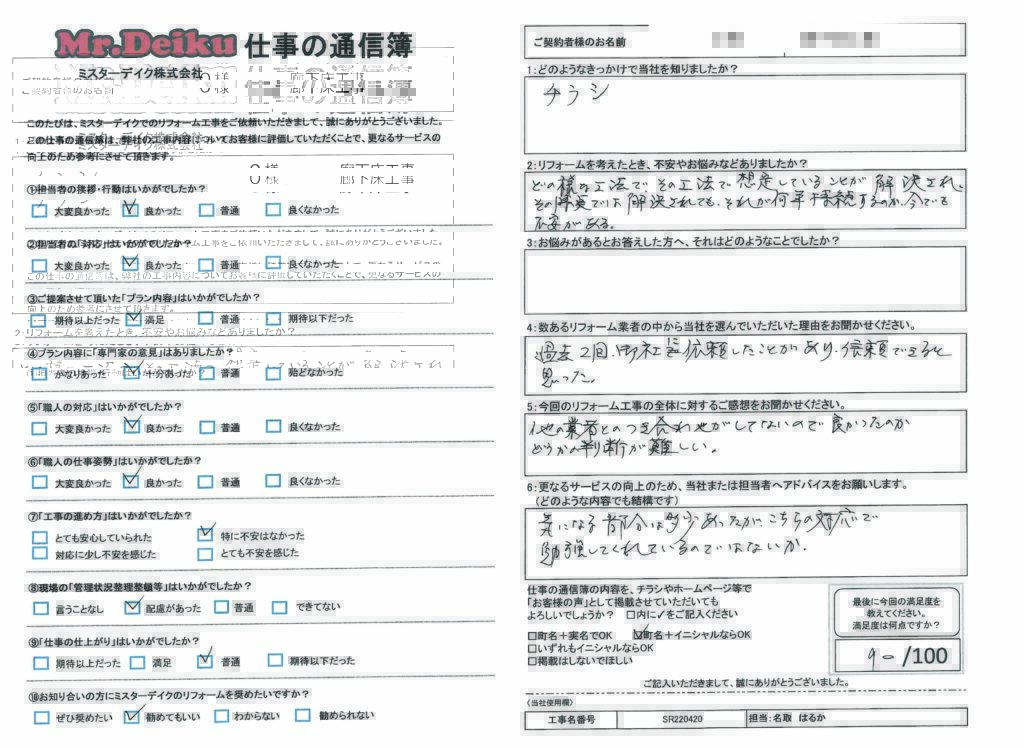 Mr.Deiku 仕事の通信簿
ミスターデイク株式会社
O 様 廊下床工事
このたびは、ミスターデイクでのリフォーム工事をご依頼いただきまして、誠にありがとうございました。
この仕事の通信簿は、弊社の工事内容についてお客様に評価していただくことで、更なるサービスの
向上のため参考にさせて頂きます。
①担当者の挨拶・行動はいかがでしたか?
大変良かった 良かった 普通 良くなかった
②担当者の「対応」はいかがでしたか?
大変良かった 良かった 普通 良くなかった
③ご提案させて頂いた「プラン内容」はいかがでしたか?
期待以上だった 満足 普通 期待以下だった
④プラン内容に「専門家の意見」はありましたか?
かなりあった 十分あった 普通 殆どなかった
⑤「職人の対応」はいかがでしたか?
大変良かった 良かった 普通 良くなかった
⑥「職人の仕事姿勢」はいかがでしたか?
大変良かった 良かった 普通 良くなかった
⑦「工事の進め方」はいかがでしたか?
とても安心していられた 特に不安はなかった
対応に少し不安を感じた とても不安を感じた
⑧現場の「管理状況整理整頓等」はいかがでしたか?
言うことなし 配慮があった 普通 できてない
⑨「仕事の仕上がり」はいかがでしたか?
期待以上だった 満足 普通 期待以下だった
⑩お知り合いの方にミスターデイクのリフォームを奨めたいですか?
ぜひ奨めたい 勧めてもいい わからない 勧められない
ご契約者様のお名前
1:どのようなきっかけで当社を知りましたか?
チラシ
2:リフォームを考えたとき、不安やお悩みなどありましたか?
どの様な工法で その工法で 想定していることが 解決され、
その時点では 解決されても、それが何年持続するのか、今でも
不安がある。
3:お悩みがあるとお答えした方へ、それはどのようなことでしたか?
4:数あるリフォーム業者の中から当社を選んでいただいた理由をお聞かせください。
過去2回、御社に依頼したことがあり、信頼できると
思った。
5:今回のリフォーム工事の全体に対するご感想をお聞かせください。
他の業者とのつき合わせがしてないので 良かったのか
どうかの判断が難しい。
6:更なるサービスの向上のため、当社または担当者へアドバイスをお願いします。
(どのような内容でも結構です)
気になる部分は多少あったが、こちらの対応で
勉強してくれているのではないか。
仕事の通信簿の内容を、チラシやホームページ等で
「お客様の声」として掲載させていただいても
よろしいでしょうか? □内に✓をご記入ください
□町名+実名でOK ☑町名+イニシャルならOK
□いずれもイニシャルならOK
□掲載はしないでほしい
最後に今回の満足度を
教えてください。
満足度は何点ですか?
/100
ご記入いただきまして、誠にありがとうございました。
(当社使用欄)
工事名番号 SR220420 担当:名取 はるか